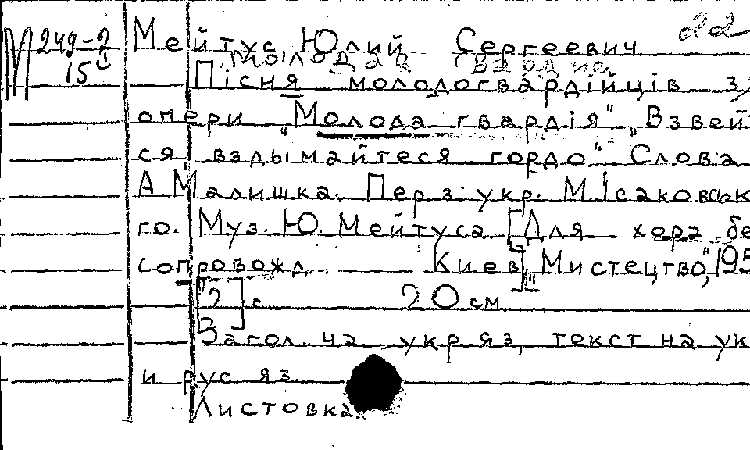 М 249-2 Мейтус Юлий Сергеевич 22
15 Молода гвардия
Пісня молодогвардійців з
опери „Молода гвардія" „Взвей
ся вздымайтеся гордо" Слова
А Малишка. Пер з укр. М Ісаковськ
го. Муз. Ю. Мейтуса [Для хора бе
сопровожд Киев], „Мистецтво", 195
[2] с 20 см
Загол. на укр яз, текст на ук
и рус яз
Листовка